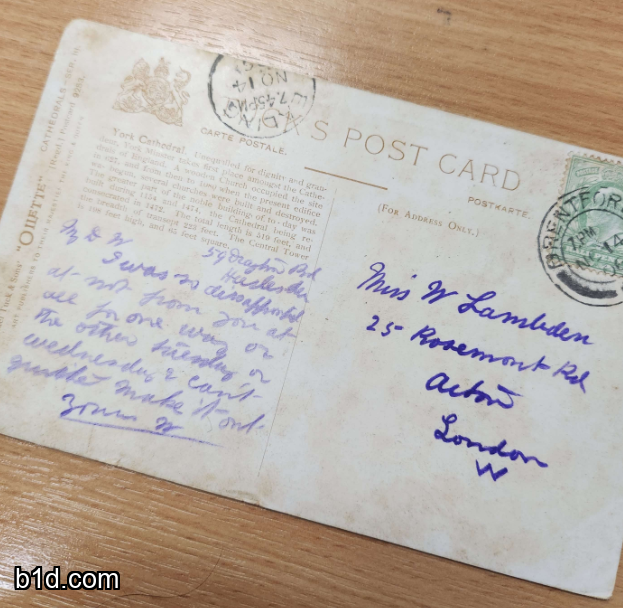 CARTE POSTALE.
'S POST CARD
POSTKARTE.
(FOR ADDRESS ONLY.)
"OILETTE" CATHEDRALS
York Cathedral. Unequalled for dignity and gran-
deur, York Minster takes first place amongst the Cathe-
drals of England. A wooden church occupied the site
in 627, and from then to 1220, when the present edifice
was begun, several churches were built and destroyed.
The greater part of the noble building of to-day was
built during 1154 and 1474, the Cathedral being re-
consecrated in 1472. The total length is 519 feet, and
the breadth of transept 223 feet. The Central Tower
is 198 feet high, and 65 feet square.
NO 14
7.45PM
BRENTFORD
7 PM
NO 14
My D W
59 Drayton Rd
Harlesden
I was so disappointed
at not from you at
all for one way or
the other Tuesday or
Wednesday & can't
quite make it out.
Yours W
Miss W Lambden
25 Rosemont Rd
Acton
London
W
b1d.com